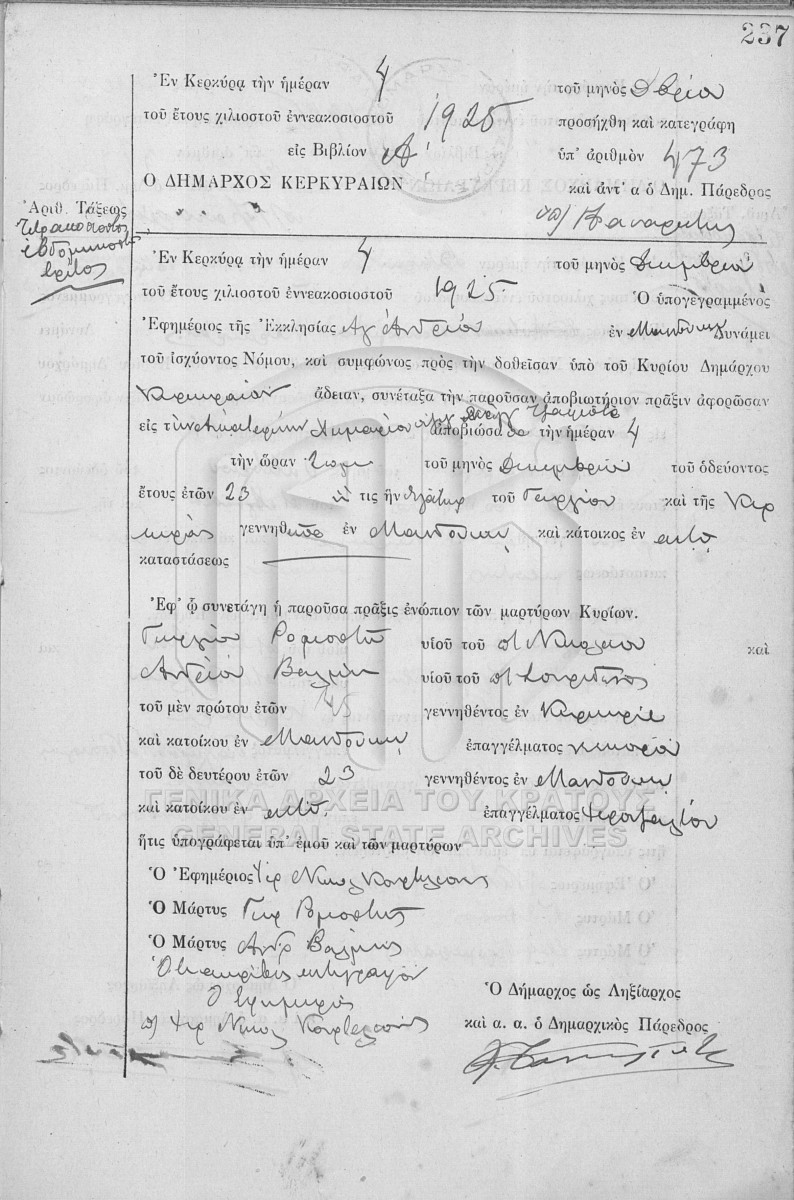 237
Ἐν Κερκύρᾳ τὴν ἡμέραν 4 τοῦ μηνὸς Δβρίου
τοῦ ἔτους χιλιοστοῦ ἐννεακοσιοστοῦ 1925 προσήχθη καὶ κατεγράφη
εἰς Βιβλίον Α! ὑπ' ἀριθμὸν 473
Ὁ ΔΗΜΑΡΧΟΣ ΚΕΡΚΥΡΑΙΩΝ καὶ ἀντ' α ὁ Δημ. Πάρεδρος
Ἀριθ. Τάξεως
Τετρακοσιοστὸς
ἑβδομηκοστὸς
τρίτος
Ἐν Κερκύρᾳ τὴν ἡμέραν 4 τοῦ μηνὸς Δεκεμβρίου
τοῦ ἔτους χιλιοστοῦ ἐννεακοσιοστοῦ 1925 Ὁ ὑπογεγραμμένος
Ἐφημέριος τῆς Ἐκκλησίας Ἁγ Ἀνδρέου ἐν Μανδούκι δυνάμει
τοῦ ἰσχύοντος Νόμου, καὶ συμφώνως πρὸς τὴν δοθεῖσαν ὑπὸ τοῦ Κυρίου Δημάρχου
Κερκυραίων ἄδειαν, συνέταξα τὴν παροῦσαν ἀποβιωτήριον πρᾶξιν ἀφορῶσαν
εἰς τὴν ἀποβιώσασα τὴν ἡμέραν 4
τὴν ὥραν τοῦ μηνὸς Δεκεμβρίου τοῦ ὁδεύοντος
ἔτους ἐτῶν 23 ἥ τις ἦν θυγάτηρ τοῦ Γεωργίου καὶ τῆς Κερ
κυρας γεννηθεῖσα ἐν Μανδούκι καὶ κάτοικος ἐν αὐτῷ
καταστάσεως
Ἐφ' ᾧ συνετάγη ἡ παροῦσα πρᾶξις ἐνώπιον τῶν μαρτύρων Κυρίων.
Γεωργίου υἱοῦ τοῦ Νικολάου καὶ
Ἀνδρέου Βαλμῆ υἱοῦ τοῦ Σπυρίδωνος
τοῦ μὲν πρώτου ἐτῶν 45 γεννηθέντος ἐν Κερκύρᾳ
καὶ κατοίκου ἐν Μανδούκι ἐπαγγέλματος
τοῦ δὲ δευτέρου ἐτῶν 23 γεννηθέντος ἐν Μανδούκι
καὶ κατοίκου ἐν αὐτῷ ἐπαγγέλματος
ΓΕΝΙΚΑ ΑΡΧΕΙΑ ΤΟΥ ΚΡΑΤΟΥΣ
GENERAL STATE ARCHIVES
ἥτις ὑπογράφεται ὑπ' ἐμοῦ καὶ τῶν μαρτύρων
Ὁ Ἐφημέριος Ἱερ Νικολ
Ὁ Μάρτυς Γεωρ
Ὁ Μάρτυς Ἀνδρ Βαλμῆς
Ὅτι ἀκριβὲς ἀντίγραφον
Ὁ Ἐφημέριος
Ἱερ Νικολ
Ὁ Δήμαρχος ὡς Ληξίαρχος
καὶ α. α. ὁ Δημαρχικὸς Πάρεδρος